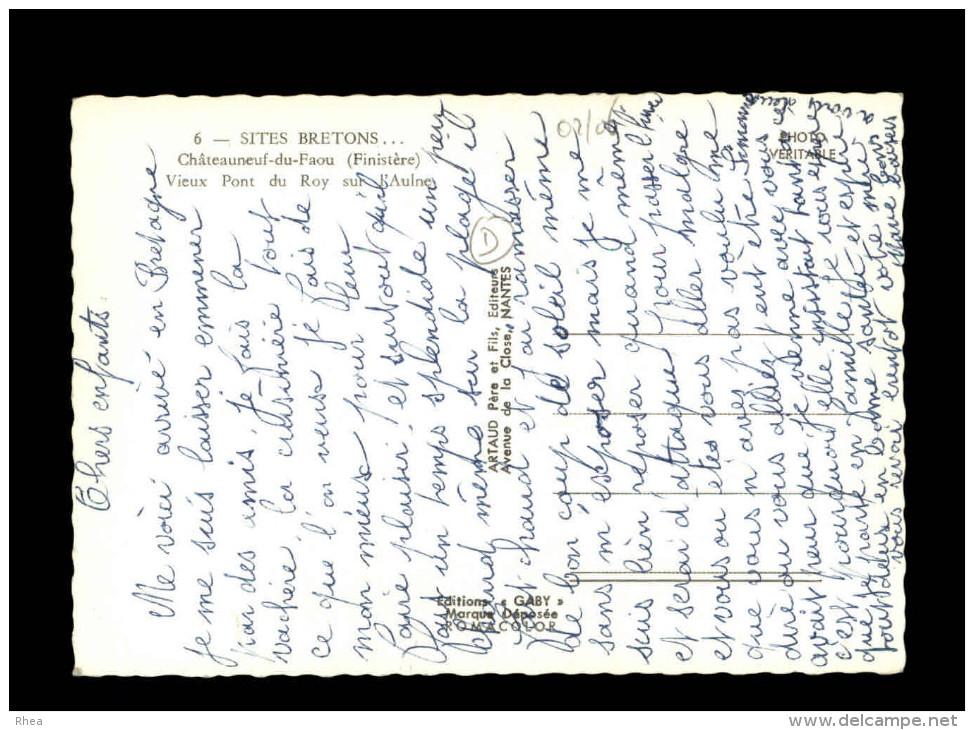 6 — SITES BRETONS...
Châteauneuf-du-Faou (Finistère)
Vieux Pont du Roy sur l'Aulne
PHOTO
VÉRITABLE
02/06
1
ARTAUD Père et Fils, Editeurs
Avenue de la Close, NANTES
Editions « GABY »
Marque Déposée
ROMACOLOR
Chers enfants.
Me voici arrivé en Bretagne
je me suis laisser emmener
par des amis je fais la
vachère, la cuisinière tout
ce que l'on veux je fais de
mon mieux pour leur
faire plaisir, et surtout qu'il
fait un temps splendide un peu
chaud même sur la plage il
est chaud et j'ai ramasser
de bon coup de soleil même
sans m'exposer mais je me
suis bien reposer quand même
et serai d'attaque pour passer l'hiver
et vous ou êtes vous aller malgré
que vous n'aves pas voulu me
dire ou vous alliez peut être Simonne
avait peur que je vienne avec vous
c'est pourquoi elle
que parte en famille et espère
tous deux en bonne santé
vous revoir bientôt votre mère
bons baisers
Rhea
http://www.delcampe.net